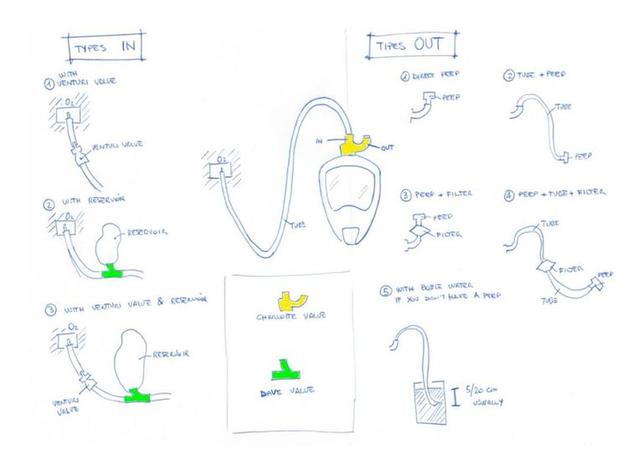 TYPES IN
TIPES OUT
① WITH
VENTURI VALVE
O₂
VENTURI VALVE
② WITH RESERVOIR
O₂
RESERVOIR
③ WITH VENTURI VALVE & RESERVOIR
O₂
RESERVOIR
VENTURI
VALVE
O₂
TUBE
IN
OUT
CHARLOTTE VALVE
DAVE VALVE
① DIRECT PEEP
PEEP
② TUBE + PEEP
TUBE
PEEP
③ PEEP + FILTER
PEEP
FILTER
④ PEEP + TUBE + FILTER
TUBE
FILTER
PEEP
TUBE
⑤ WITH BOTTLE WATER
IF YOU DON'T HAVE A PEEP
5/20 cm
USUALLY